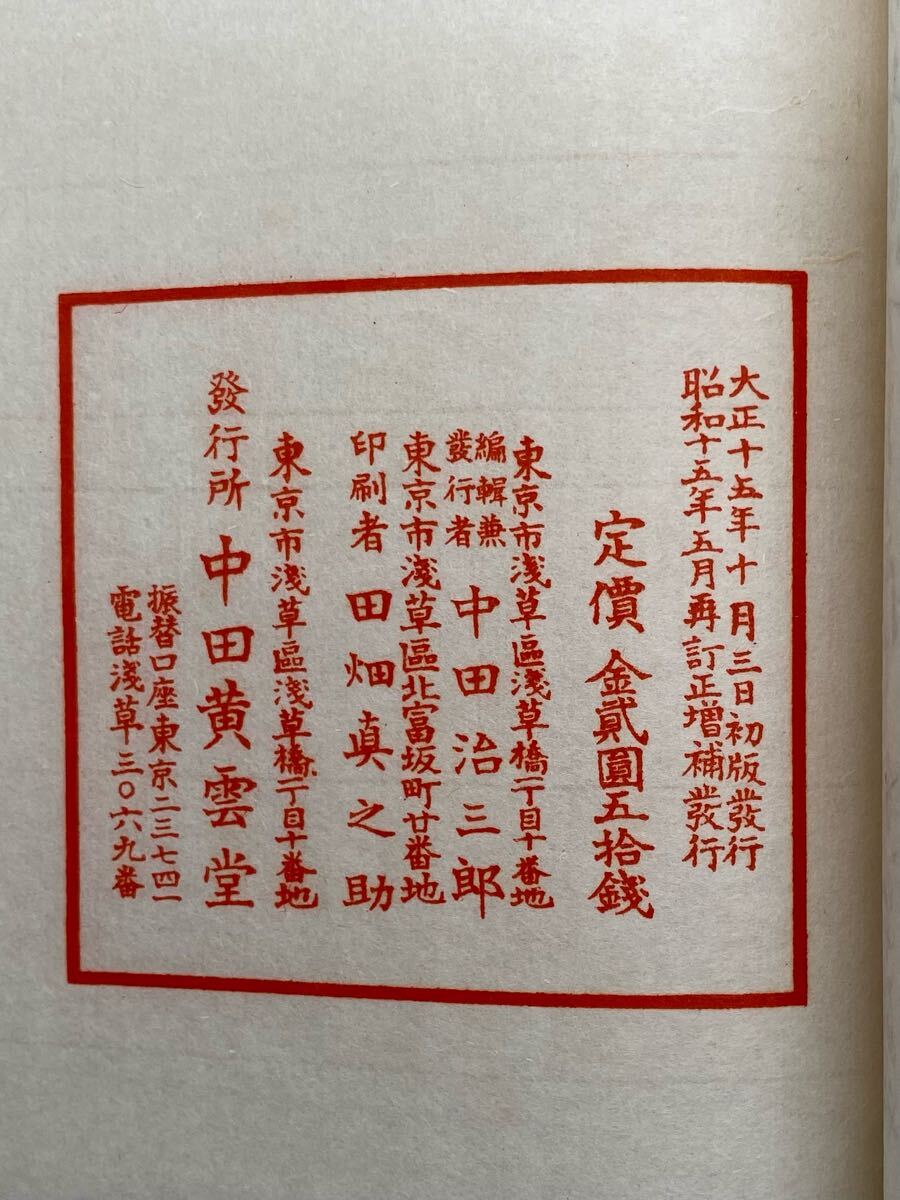 大正十五年十月三日初版發行
昭和十五年五月再訂正增補發行
定價金貳圓五拾錢
東京市淺草區淺草橋一丁目十番地
編輯兼發行者 中田治三郎
東京市淺草區北富坂町廿番地
印刷者 田畑真之助
東京市淺草區淺草橋一丁目十番地
發行所 中田黄雲堂
振替口座東京二三七四一
電話淺草三〇六九番